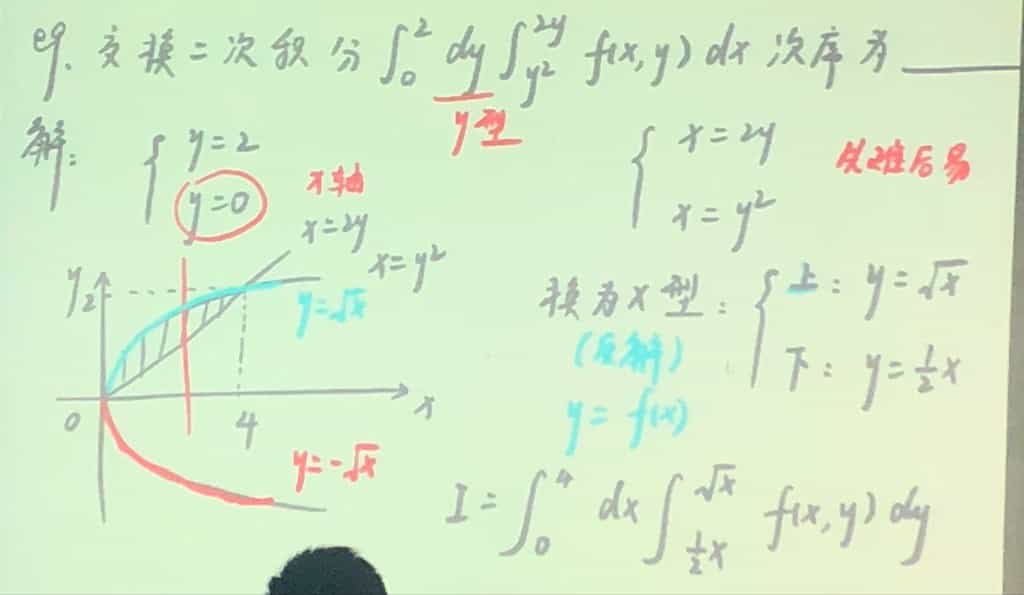 eg. 交换二次积分 ∫₀² dy ∫_{y²}^{2y} f(x,y) dx 次序为 ____
y型
解: { y=2
y=0
x轴
{ x=2y
x=y²
先难后易
x=2y
x=y²
y
2
y=√x
0
4
x
y=-√x
换为X型: { 上: y=√x
下: y=½x
(反解)
y=f(x)
I=∫₀⁴ dx ∫_{½x}^{√x} f(x,y) dy